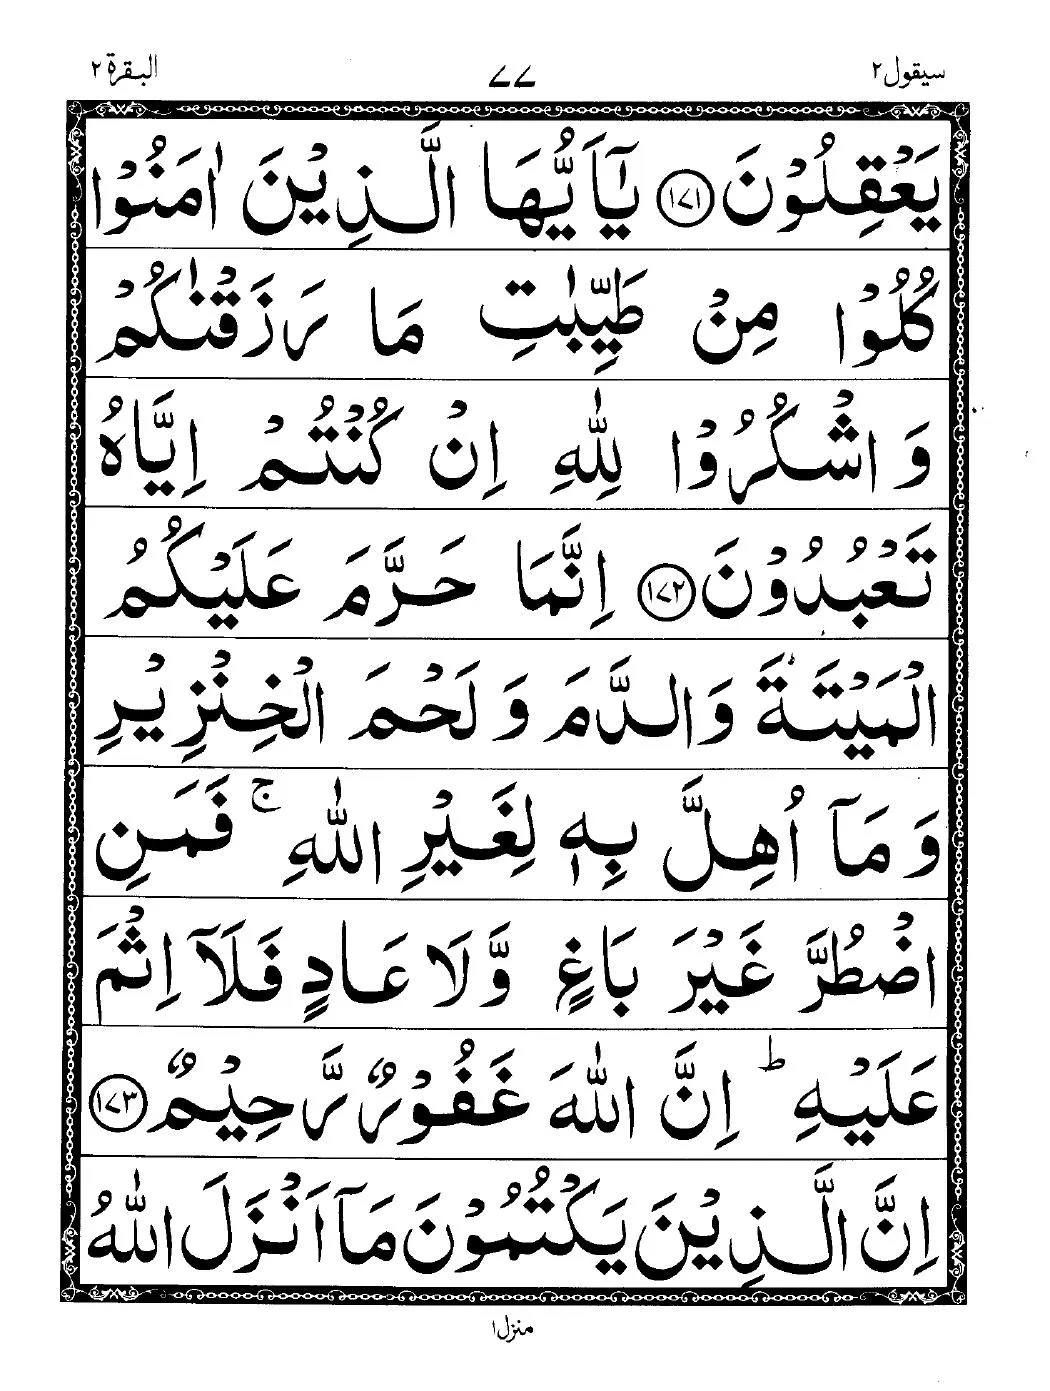 سيقول ٢ ٧٧ البقرة ٢
يَعْقِلُوْنَ ﴿١٧١﴾ يٰٓاَيُّهَا الَّذِيْنَ اٰمَنُوْا
كُلُوْا مِنْ طَيِّبٰتِ مَا رَزَقْنٰكُمْ
وَ اشْكُرُوْا لِلّٰهِ اِنْ كُنْتُمْ اِيَّاهُ
تَعْبُدُوْنَ ﴿١٧٢﴾ اِنَّمَا حَرَّمَ عَلَيْكُمُ
الْمَيْتَةَ وَالدَّمَ وَ لَحْمَ الْخِنْزِيْرِ
وَ مَآ اُهِلَّ بِهٖ لِغَيْرِ اللّٰهِ ۚ فَمَنِ
اضْطُرَّ غَيْرَ بَاغٍ وَّلَا عَادٍ فَلَآ اِثْمَ
عَلَيْهِ ؕ اِنَّ اللّٰهَ غَفُوْرٌ رَّحِيْمٌ ﴿١٧٣﴾
اِنَّ الَّذِيْنَ يَكْتُمُوْنَ مَآ اَنْزَلَ اللّٰهُ
منزل ١